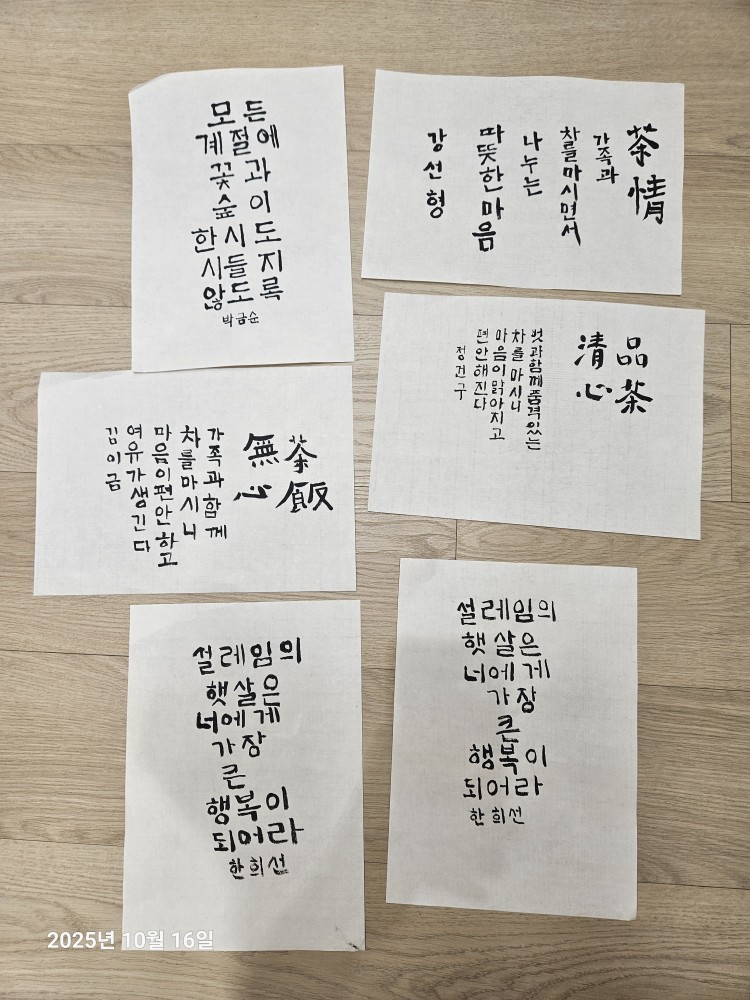 모든
계절에
꽃과
숲이
한시도
시들지
않도록
박금순
茶情
가족과
차를마시면서
나누는
따뜻한마음
강선형
品茶
清心
벗과함께품격있는
차를마시니
마음이맑아지고
편안해진다
정건구
茶飯
無心
가족과함께
차를마시니
마음이편안하고
여유가생긴다
김이금
설레임의
햇살은
너에게
가장
큰
행복이
되어라
한희선
설레임의
햇살은
너에게
가장
큰
행복이
되어라
한희선
2025년 10월 16일